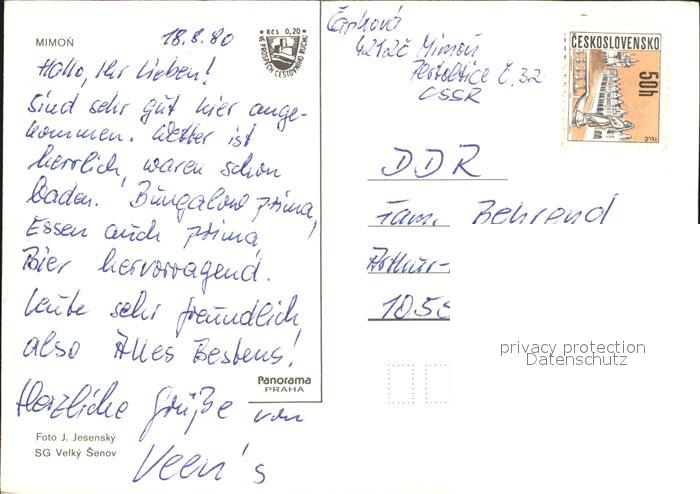 MIMOŇ
18.8.80
Hallo, Ihr Lieben!
Sind sehr gut hier ange-
kommen. Wetter ist
herrlich, waren schon
baden. Bungalow prima,
Essen auch prima,
Bier hervorragend.
Leute sehr freundlich
also Alles Bestens!
Herzliche Grüße von
Foto J. Jesenský
SG Velký Šenov
Panorama
PRAHA
Kčs 0,20
VE PROSPĚCH CESTOVNÍHO RUCHU
Čapková
42124 Mimoň
Pertoltice č. 32
ČSSR
ČESKOSLOVENSKO
50h
TELČ
DDR
Fam. Behrend
Arthur-
1055
privacy protection
Datenschutz